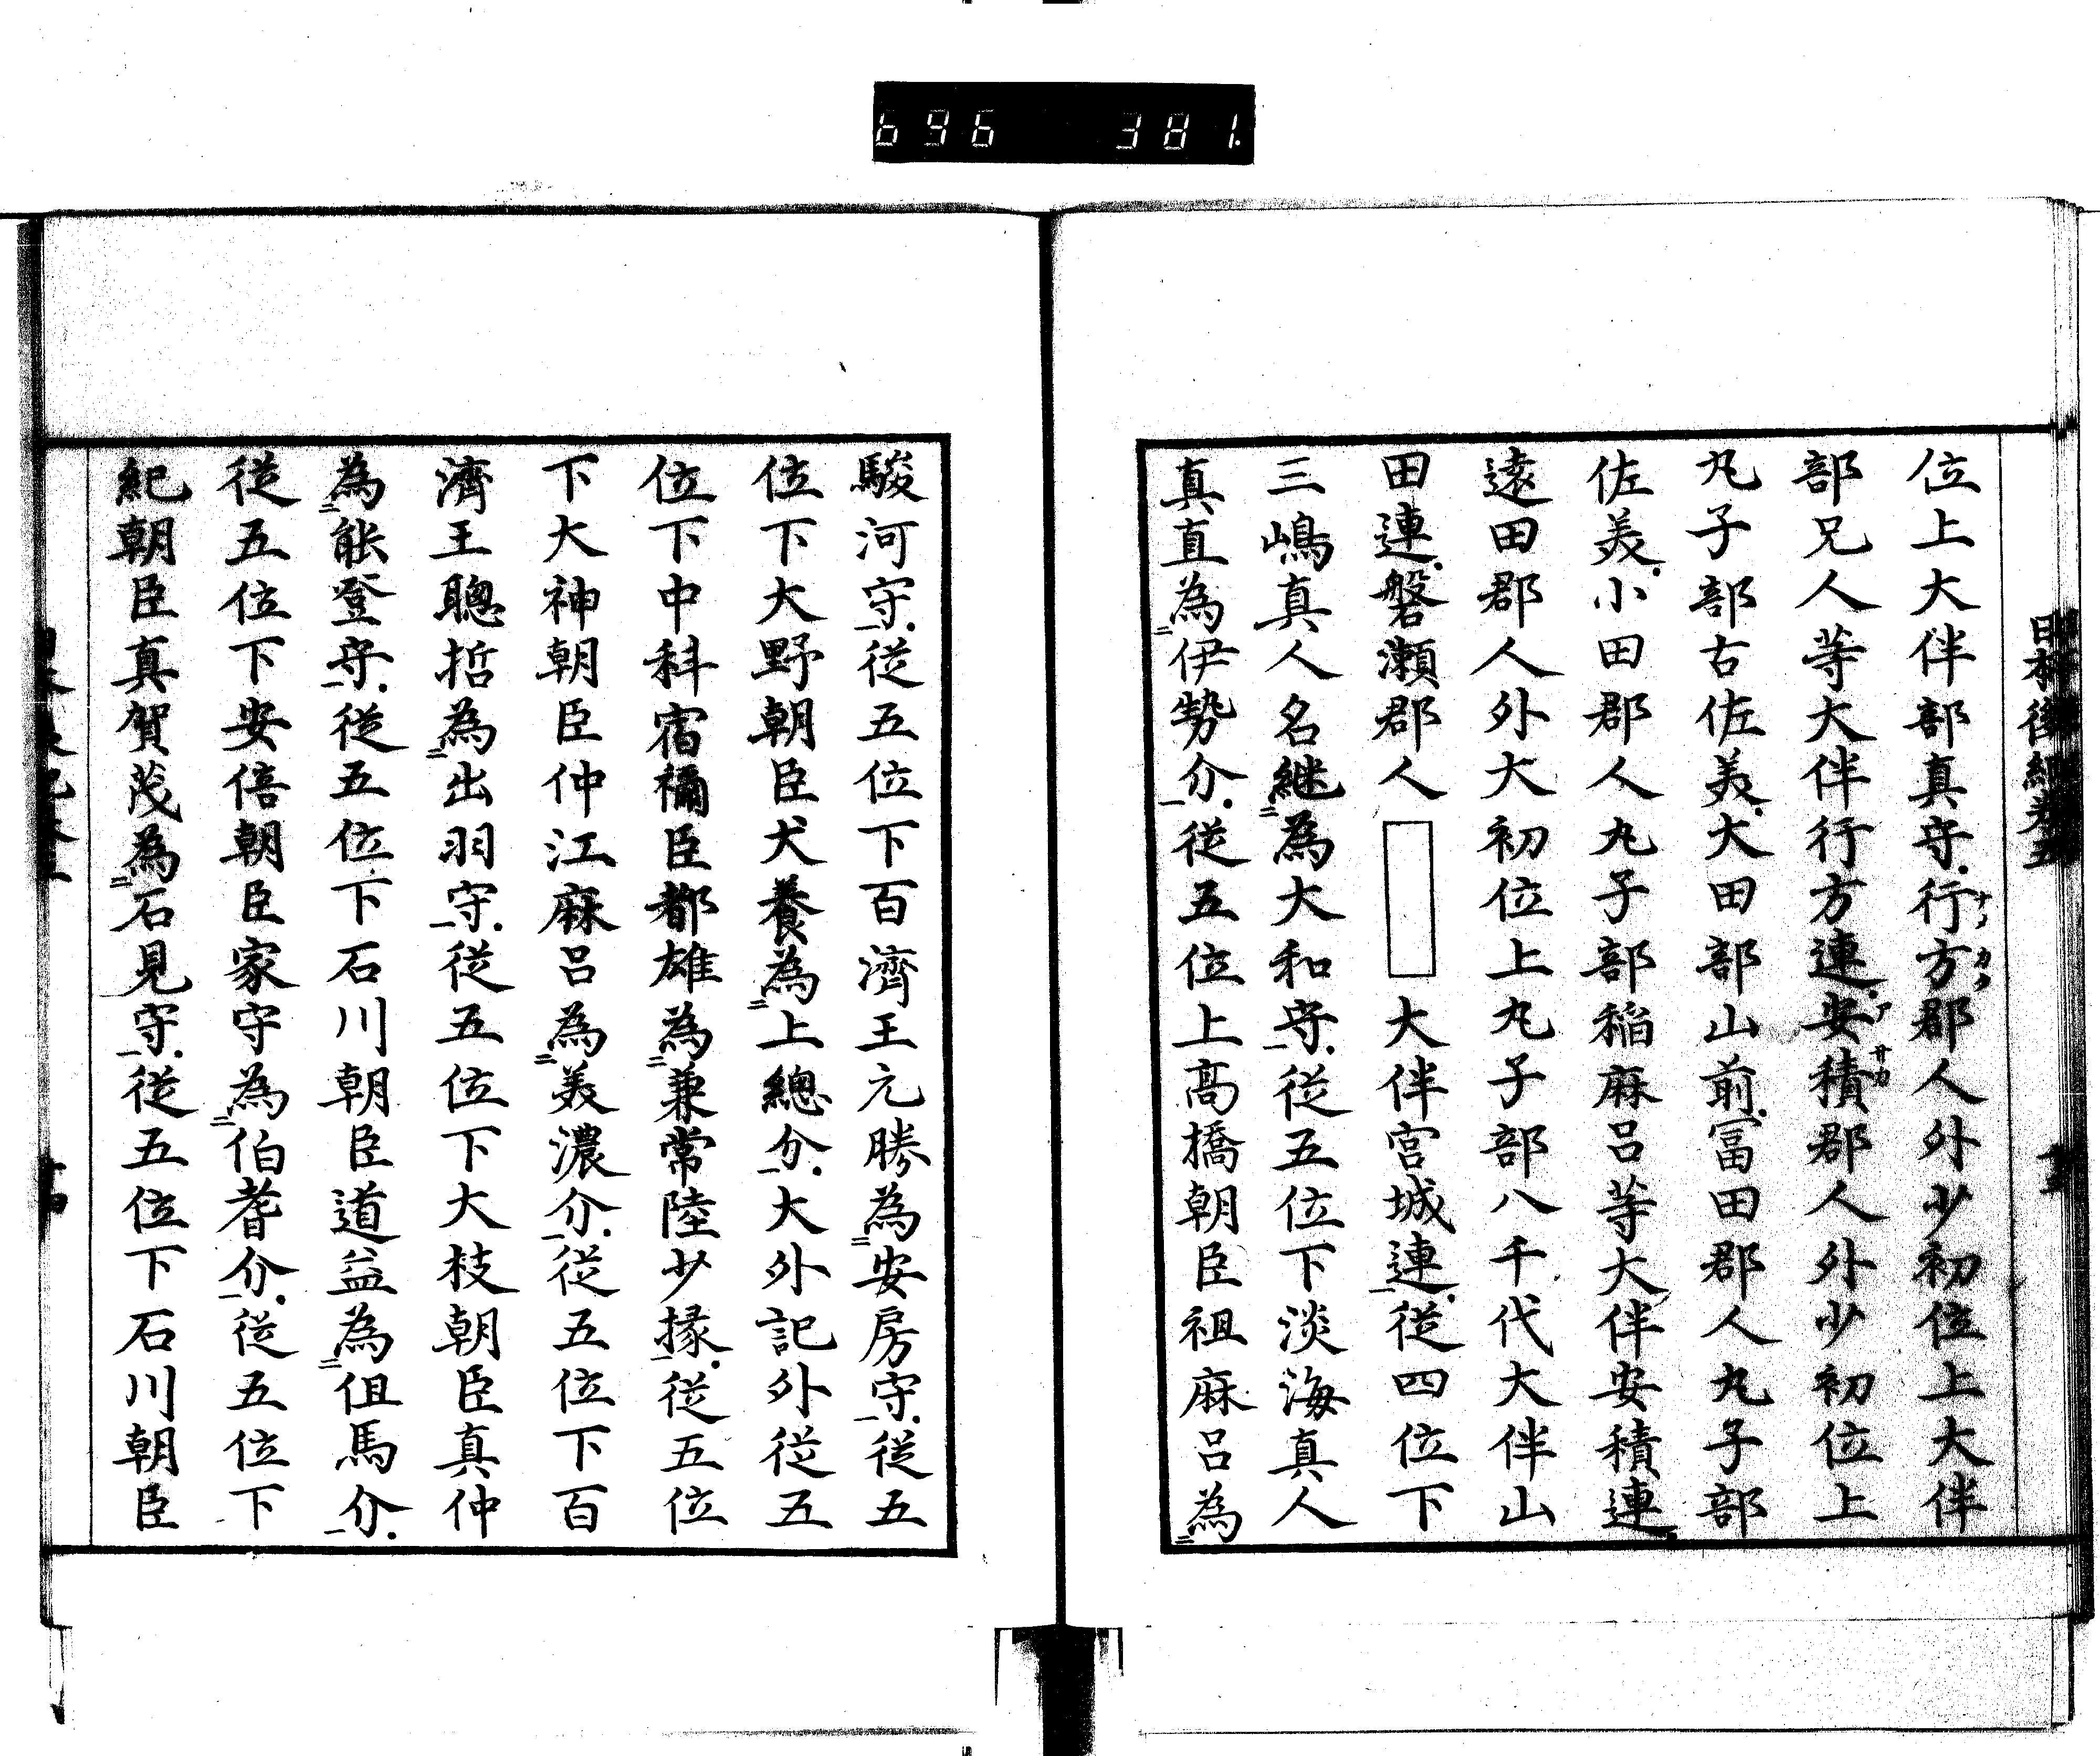 696 381.
日本後紀卷五
十三
位上大伴部真守行方郡人外少初位上大伴
部兄人等大伴行方連安積郡人外少初位上
丸子部古佐美大田部山前冨田郡人丸子部
佐美小田郡人丸子部稲麻呂等大伴安積連
遠田郡人外大初位上丸子部八千代大伴山
田連磐瀬郡人大伴宮城連從四位下
三嶋真人名継為大和守從五位下淡海真人
真直為伊勢介從五位上髙橋朝臣祖麻呂為
駿河守從五位下百濟王元勝為安房守從五
位下大野朝臣犬養為上總介大外記外從五
位下中科宿禰臣都雄為兼常陸少掾從五位
下大神朝臣仲江麻呂為美濃介從五位下百
濟王聰哲為出羽守從五位下大枝朝臣真仲
為能登守從五位下石川朝臣道益為但馬介
從五位下安倍朝臣家守為伯耆介從五位下
紀朝臣真賀茂為石見守從五位下石川朝臣